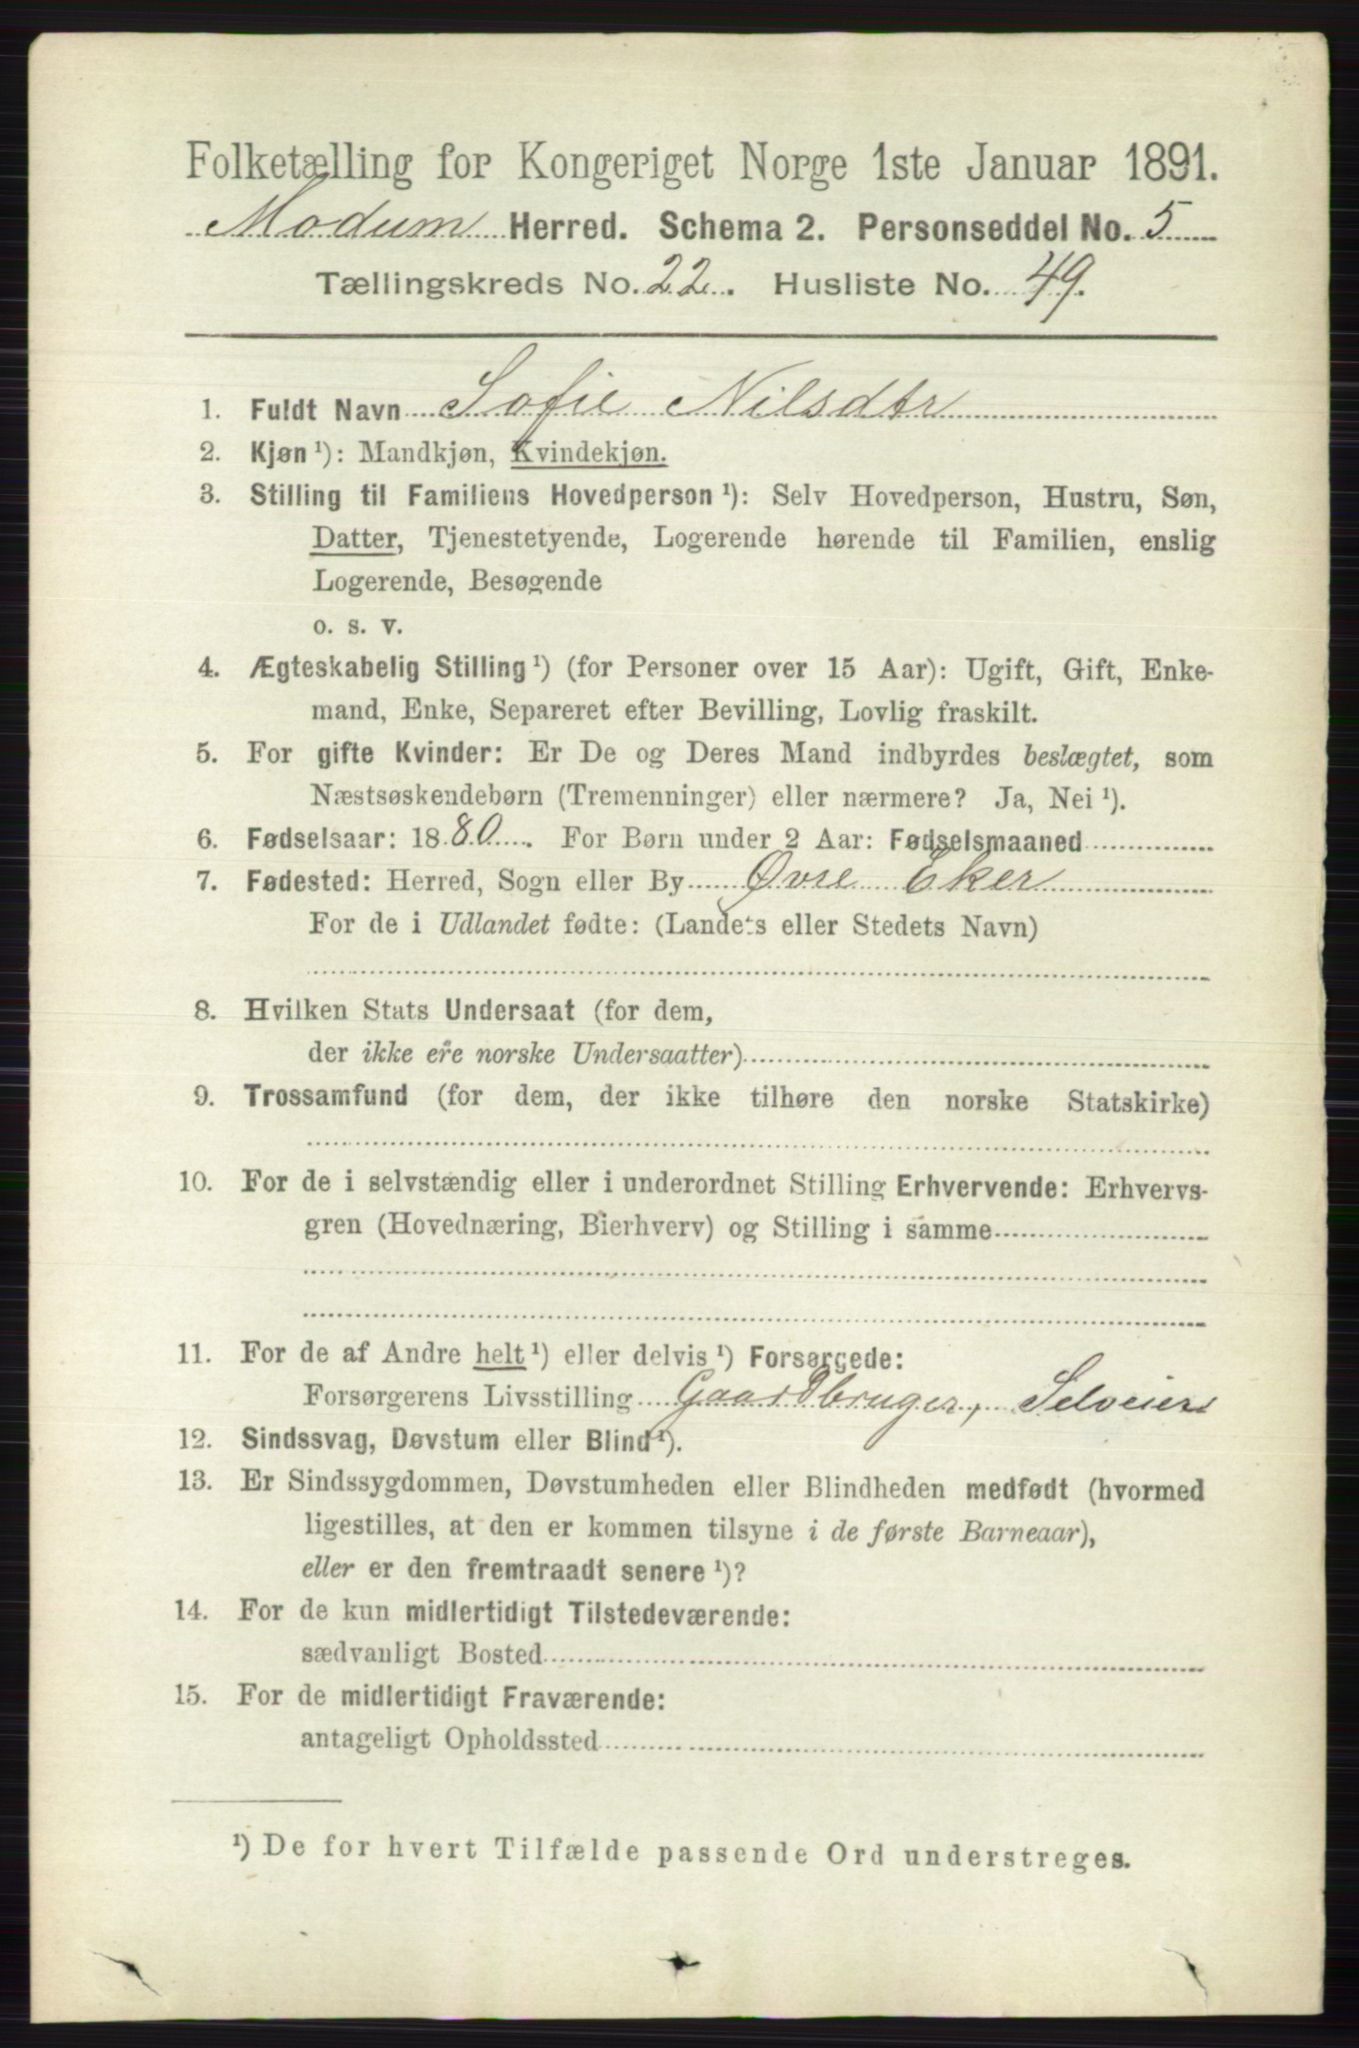 Folketælling for Kongeriget Norge 1ste Januar 1891.
Modum Herred. Schema 2. Personseddel No. 5
Tællingskreds No. 22. Husliste No. 49.
1. Fuldt Navn Sofie Nilsdtr
2. Kjøn ¹): Mandkjøn, Kvindekjøn.
3. Stilling til Familiens Hovedperson ¹): Selv Hovedperson, Hustru, Søn,
Datter, Tjenestetyende, Logerende hørende til Familien, enslig
Logerende, Besøgende
o. s. v.
4. Ægteskabelig Stilling ¹) (for Personer over 15 Aar): Ugift, Gift, Enke-
mand, Enke, Separeret efter Bevilling, Lovlig fraskilt.
5. For gifte Kvinder: Er De og Deres Mand indbyrdes beslægtet, som
Næstsøskendebørn (Tremenninger) eller nærmere? Ja, Nei ¹).
6. Fødselsaar: 1880. For Børn under 2 Aar: Fødselsmaaned
7. Fødested: Herred, Sogn eller By Øvre Eker
For de i Udlandet fødte: (Landets eller Stedets Navn)
8. Hvilken Stats Undersaat (for dem,
der ikke ere norske Undersaatter)
9. Trossamfund (for dem, der ikke tilhøre den norske Statskirke)
10. For de i selvstændig eller i underordnet Stilling Erhvervende: Erhvervs-
gren (Hovednæring, Bierhverv) og Stilling i samme
11. For de af Andre helt ¹) eller delvis ¹) Forsørgede:
Forsørgerens Livsstilling Gaardbruger, Selveier
12. Sindssvag, Døvstum eller Blind ¹).
13. Er Sindssygdommen, Døvstumheden eller Blindheden medfødt (hvormed
ligestilles, at den er kommen tilsyne i de første Barneaar),
eller er den fremtraadt senere ¹)?
14. For de kun midlertidigt Tilstedeværende:
sædvanligt Bosted
15. For de midlertidigt Fraværende:
antageligt Opholdssted
¹) De for hvert Tilfælde passende Ord understreges.